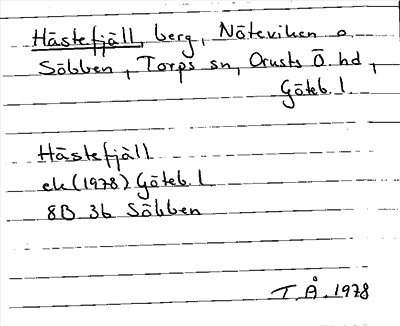 Hästefjäll, berg, Nöteviken o
Säbben, Torps sn, Orusts Ö. hd,
Göteb. l.
Hästefjäll
ek (1978) Göteb. l
8B 3b Säbben
T. Å. 1978